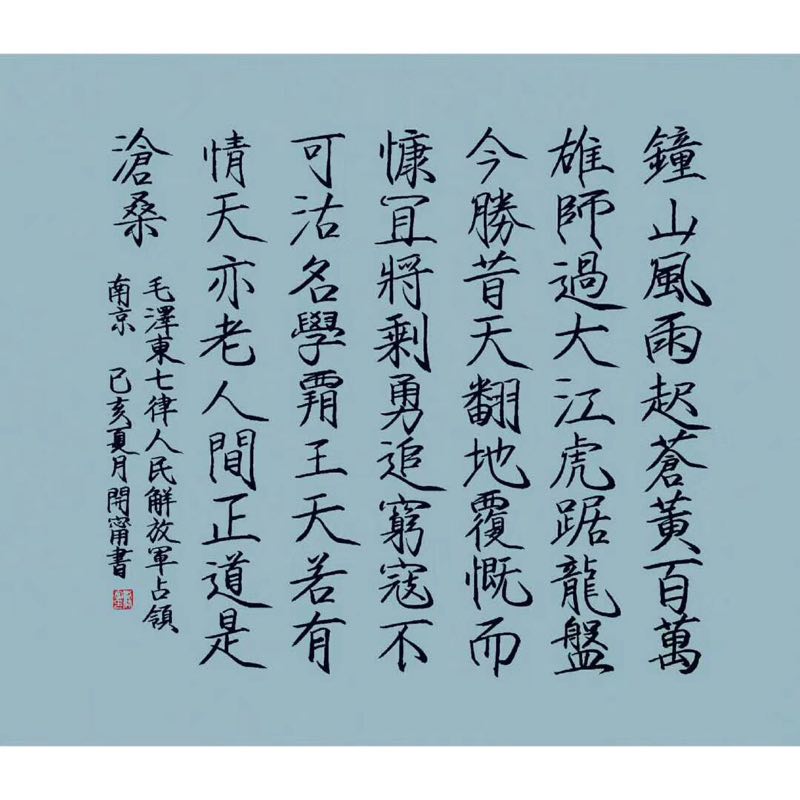 鐘山風雨起蒼黃百萬
雄師過大江虎踞龍盤
今勝昔天翻地覆慨而
慷宜將剩勇追窮寇不
可沽名學霸王天若有
情天亦老人間正道是
滄桑
毛澤東七律人民解放軍占領
南京 己亥夏月開甯書